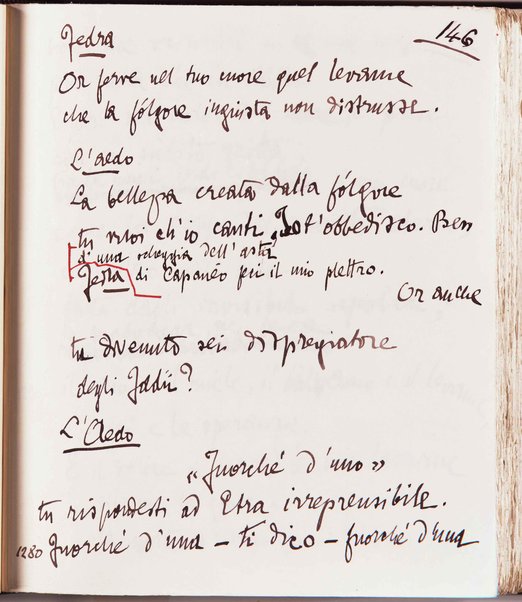 146
Fedra
Or ferve nel tuo cuore quel levame
che la fólgore ingiusta non distrusse.
L'aedo
La bellezza creata dalla fólgore
tu vuoi ch'io canti. Io t'obbedisco. Ben
d'una scheggia dell'asta
di Capanèo feci il mio plettro.
Fedra
Or anche
tu divenuto sei dispregiatore
degli Iddii?
L'Aedo
"Fuorché d'uno"
tu rispondesti ad Etra irreprensibile.
1280 Fuorché d'una – ti dico – fuorché d'una